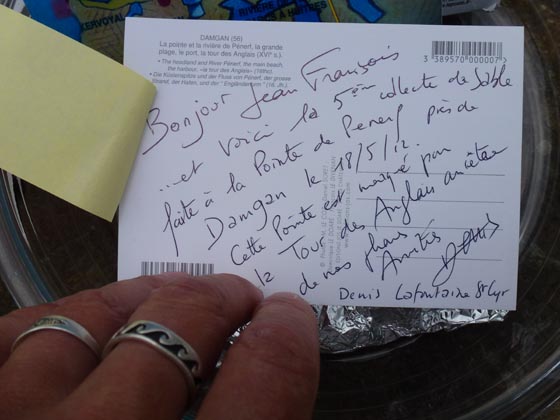 KERVOYAL
RIVIÈRE
DAMGAN (56)
La pointe et la rivière de Pénerf, la grande
plage, le port, la tour des Anglais (XVIe s.).
• The headland and River Pénerf, the main beach,
the harbour, «la tour des Anglais» (16thc).
• Die Küstenspitze und der Fluss von Pénerf, der grosse
Strand, der Hafen, und der " Engländerturm " (16. Jh.).
3 389570 000007
Bonjour Jean François
...et voici la 5ème collecte de sable
faite à la Pointe de Penerf près de
Damgan le 18/5/12.
Cette Pointe est marqué par
la Tour des Anglais ancêtre
de nos phares
Amitiés
Denis
Denis Lafontaine St Cyr